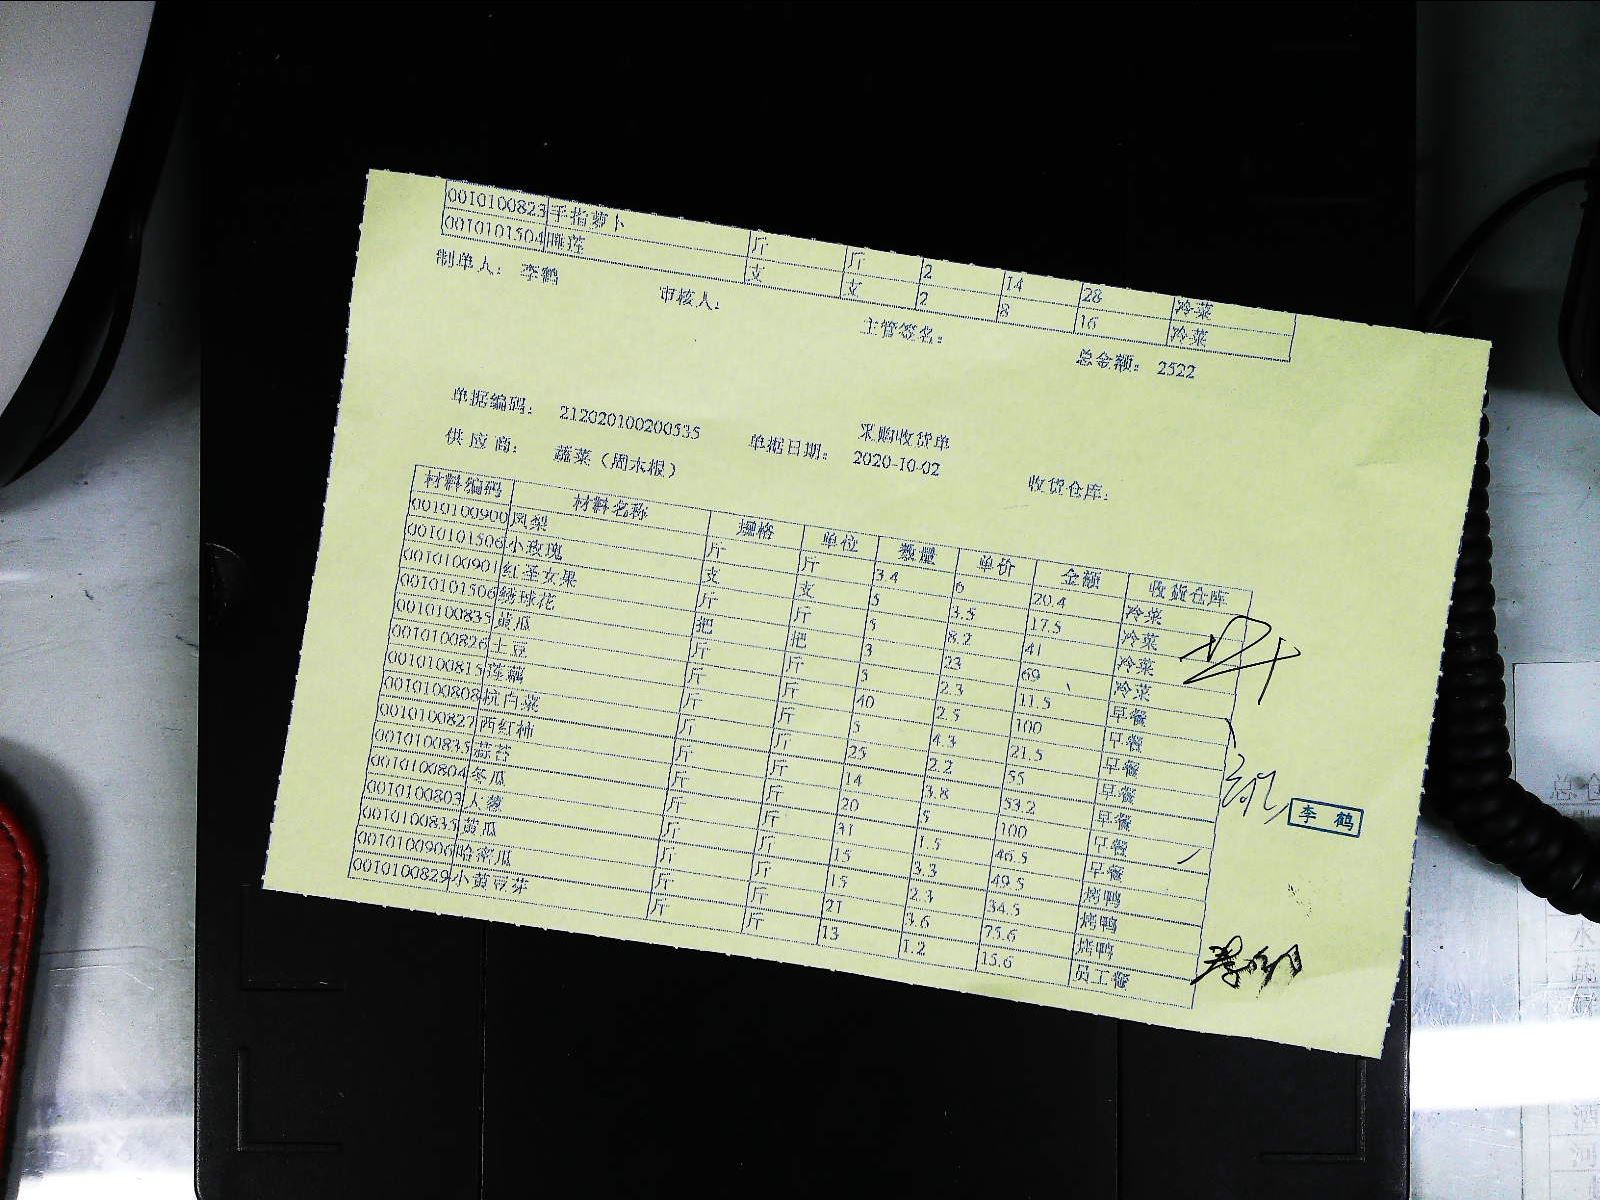 0010100823 手指萝卜 斤 斤 2 14 28 冷菜
0010101504 睡莲 支 支 2 8 16 冷菜
制单人: 李鹤 审核人: 主管签名: 总金额: 2522
采购收货单
单据编码: 212020100200535 单据日期: 2020-10-02 收货仓库:
供应商: 蔬菜（周木根）
材料编码 材料名称 规格 单位 数量 单价 金额 收货仓库
0010100900 凤梨 斤 斤 3.4 6 20.4 冷菜
0010101506 小玫瑰 支 支 5 3.5 17.5 冷菜
0010100901 红圣女果 斤 斤 5 8.2 41 冷菜
0010101506 绣球花 把 把 3 23 69 冷菜
0010100835 黄瓜 斤 斤 5 2.3 11.5 早餐
0010100826 土豆 斤 斤 40 2.5 100 早餐
0010100815 莲藕 斤 斤 5 4.3 21.5 早餐
0010100808 杭白菜 斤 斤 25 2.2 55 早餐
0010100827 西红柿 斤 斤 14 3.8 53.2 早餐
0010100835 蒜苔 斤 斤 20 5 100 早餐
0010100804 冬瓜 斤 斤 31 1.5 46.5 早餐
0010100803 大葱 斤 斤 15 3.3 49.5 烤鸭
0010100835 黄瓜 斤 斤 15 2.3 34.5 烤鸭
0010100906 哈密瓜 斤 斤 21 3.6 75.6 烤鸭
0010100829 小黄豆芽 斤 斤 13 1.2 15.6 员工餐
李鹤